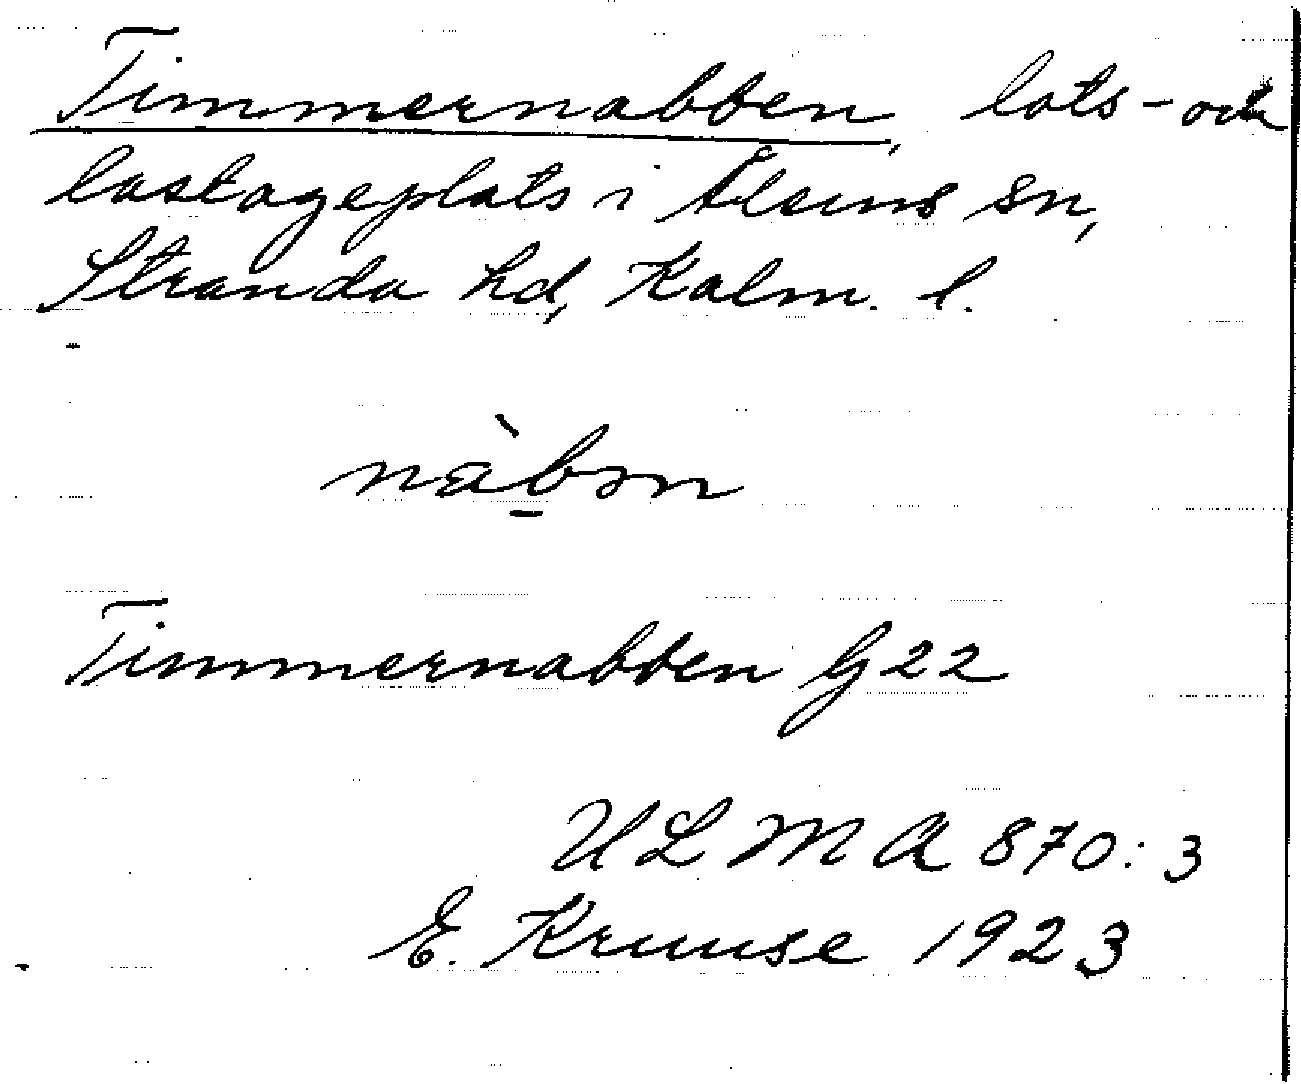 Timmernabben, lots- och
lastageplats i Ålems sn,
Stranda hd, Kalm. l.
Timmernabben G22
ULMA 870:3
E. Kruuse 1923